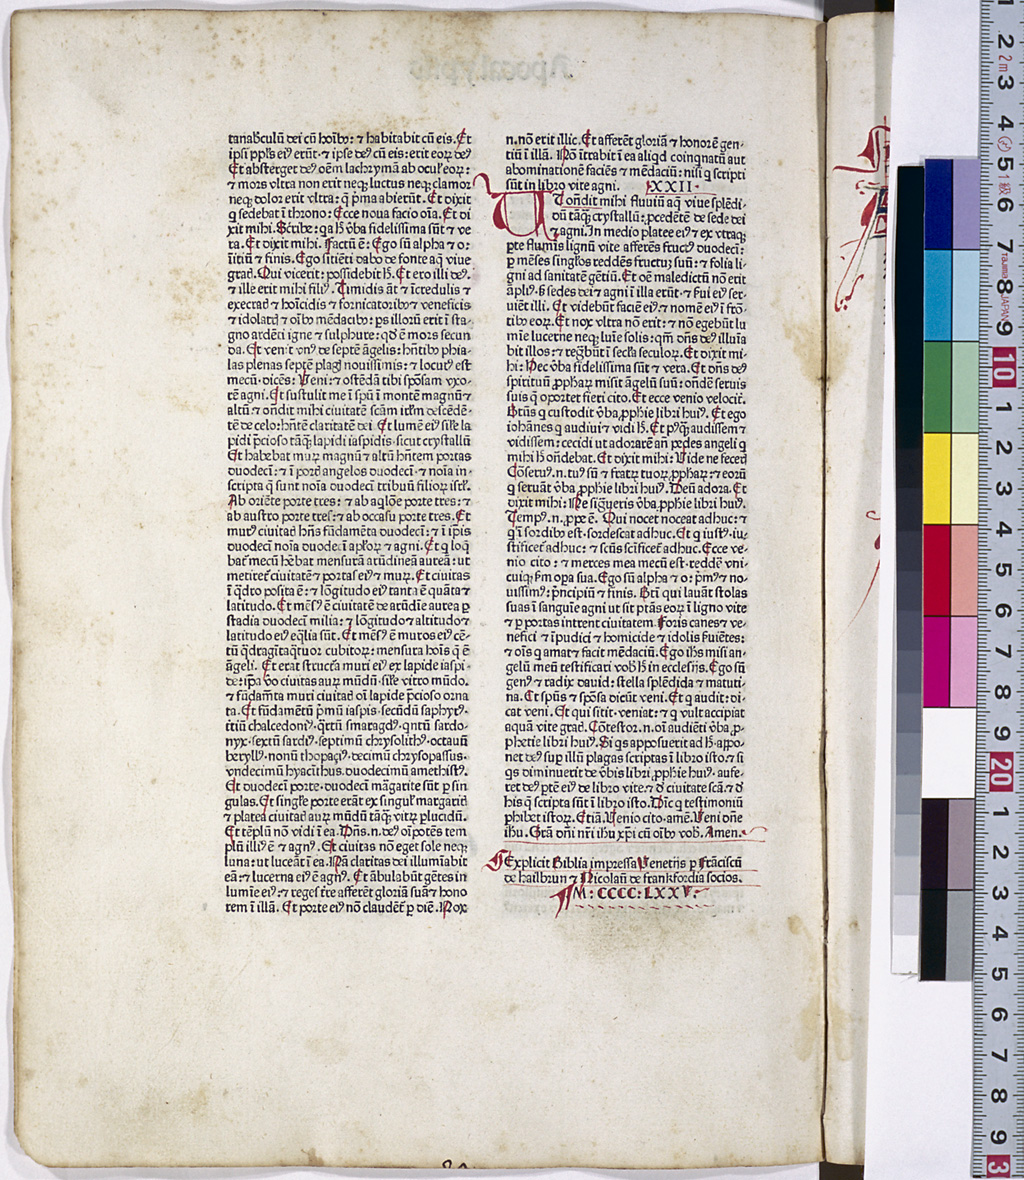 tanaḃculū dei cū hoībꝰ: ⁊ habitabit cū eis. Et
ipsi ppls eiꝰ erūt: ⁊ ipse deꝰ cū eis: erit eoꝝ deꝰ
Et absterget deꝰ oēm lachrymā ab oculꝭ eoꝝ:
⁊ mors vltra non erit neqꝫ luctus neqꝫ clamor
neqꝫ dolor erit vltra: q̄ p̄ma abierūt. Et dixit
q sedebat ī throno: Ecce noua facio oīa. Et di
xit mihi. Scribe: qa ḣ v̇ba fidelissima sūt ⁊ ve
ra. Et dixit mihi. Factū ē: Ego sū alpha ⁊ o:
ītiū ⁊ finis. Ego sitiēti dabo de fonte aq̄ viue
gratꝭ. Qui vicerit: possidebit ḣ. Et ero illi deꝰ.
⁊ ille erit mihi filiꝰ. Timidis āt ⁊ īcredulis ⁊
execratꝭ ⁊ hoīcidis ⁊ fornicatoribꝰ ⁊ veneficis
⁊ idolatrꝭ ⁊ oībꝰ mēdacibꝰ: ps illoꝝ erit ī sta-
gno ardēti igne ⁊ sulphure: qd̄ ē mors secun
da. Et venit vnꝰ de septē āgelis: hn̄tibꝰ phia-
las plenas septē plagꝭ nouissimis: ⁊ locutꝰ est
mecū. dicēs: Veni: ⁊ ostēdā tibi spōsam vxo-
rē agni. Et sustulit me ī spū ī montē magnū ⁊
altū ⁊ on̄dit mihi ciuitatē scām ierlm descēdē-
tē de celo: hn̄tē claritatē dei. Et lumē eiꝰ sil̄e la
pidi p̄cioso tāqꝫ lapidi iaspidis. sicut crystallū
Et habebat muꝝ magnū ⁊ altū hn̄tem portas
duodecī: ⁊ ī portꝭ angelos duodecī. ⁊ noīa in-
scripta q̄ sunt noīa duodecī tribuū filioꝝ isrl̄.
Ab oriēte porte tres: ⁊ ab aqlōe porte tres: ⁊
ab austro porte tres: ⁊ ab occasu porte tres. Et
murꝰ ciuitatꝭ hn̄s fūdamēta duodecī: ⁊ ī ip̄is
duodecī noīa duodecī ap̄loꝝ ⁊ agni. Et q loq̄
bat᷑ mecū hēbat mensurā arūdineā aureā: ut
metiret᷑ ciuitatē ⁊ portas eiꝰ ⁊ muꝝ. Et ciuitas
ī q̄dro posita ē: ⁊ lōgitudo eiꝰ tanta ē quāta ⁊
latitudo. Et mēsꝰ ē ciuitatē de arūdīe aurea p
stadia duodecī milia: ⁊ lōgitudo ⁊ altitudo ⁊
latitudo eiꝰ eq̄lia sūt. Et mēsꝰ ē muros eiꝰ cē-
tū q̄dragītaq̄tuor cubitoꝝ: mensura hoīs q̄ ē
āgeli. Et erat structᷓa muri eiꝰ ex lapide iaspi-
de: ip̄a vͦo ciuitas auꝝ mūdū. sil̄e vitro mūdo.
⁊ fūdam̄ta muri ciuitatꝭ oī lapide p̄cioso orna
ta. Et fūdamētū p̄mū iaspis. secūdū saphyrꝰ.
tͥtiū chalcedoniꝰ. q̄rtū smaragdꝰ. qntū sardo-
nyx. sextū sardiꝰ. septimū chrysolithꝰ. octauū
beryllꝰ. nonū thopaçiꝰ. decimū chrysopassus.
vndecimū hyacīthus. duodecimū amethistꝰ.
Et duodecī porte. duodecī māgarite sūt p sin
gulas. Et singl̄e porte erāt ex singul᷑ margaritꝭ
⁊ platea ciuitatꝭ auꝝ mūdū tāqꝫ vitꝝ plucidū.
Et tēplū nō vidi ī ea. Dn̄s. n. deꝰ oīpotēs tem
plū illiꝰ ē ⁊ agnꝰ. Et ciuitas nō eget sole neqꝫ
luna: ut luceāt ī ea. Nā claritas dei illumīabit
eā: ⁊ lucerna eiꝰ ē agnꝰ. Et ābulabūt gētes in
lumīe eiꝰ: ⁊ reges tr̄e afferēt gloriā suā ⁊ hono
rem ī illā. Et porte eiꝰ nō claudēt᷑ p diē. Nox
n. nō erit illic. Et afferēt gloriā ⁊ honorē gen-
tiū ī illā. Nō ītrabit ī ea aliqd coinqnatū aut
abominationē faciēs ⁊ mēdaciū: nisi q scripti
sūt in libro vite agni. XXII.
VT ondit mihi fluuiū aq̄ viue splēdi-
dū tāqꝫ crystallū: pcedētē de sede dei
⁊ agni. In medio platee eiꝰ ⁊ ex vtraqꝫ
pte flumīs lignū vite afferēs fructꝰ duodecī:
p mēses singl̄os reddēs fructuꝫ suū: ⁊ folia li-
gni ad sanitatē gētiū. Et oē maledictū nō erit
āpliꝰ. ꝫ sedes dei ⁊ agni ī illa erūt. ⁊ ẜui eiꝰ ser-
uiēt illi. Et videbūt faciē eiꝰ ⁊ nomē eiꝰ ī frō-
tibꝰ eoꝝ. Et nox vltra nō erit: ⁊ nō egebūt lu
mīe lucerne neqꝫ luīe solis: qm̄ dn̄s deꝰ illuīa
bit illos: ⁊ regͣbūt ī secl̄a seculoꝝ. Et dixit mi-
hi: Hec v̇ba fidelissima sūt ⁊ vera. Et dn̄s deꝰ
spirituū pphaꝝ misit āgelū suū: ondē seruis
suis q̄ oportet fieri cito. Et ecce venio velocit᷑.
Btūs q custodit v̇ba pphīe libri huiꝰ. Et ego
iohānes q audiui ⁊ vidi ḣ. Et pꝰqꝫ audissem ⁊
vidissem: cecidi ut adorarē añ pedes angeli q
mihi ḣ ondebat. Et dixit mihi: Vide ne fecerꝭ
Cōseruꝰ. n. tuꝰ sū ⁊ fratꝝ tuoꝝ pphaꝝ: ⁊ eoꝝ
q seruāt v̇ba pphīe libri huiꝰ. Deū adora. Et
dixit mihi: Ne sigͣueris v̇ba pphīe libri huiꝰ.
Tempꝰ. n. ppe ē. Qui nocet noceat adhuc: ⁊
q ī sordibꝰ est. sordescat adhuc. Et q iustꝰ. iu-
stificet᷑ adhuc: ⁊ scūs scīficet᷑ adhuc. Ecce ve-
nio cito: ⁊ merces mea mecū est. reddē vni-
cuiqꝫ ẜm opa sua. Ego sū alpha ⁊ o: p̄mꝰ ⁊ no-
uissimꝰ: p̄ncipiū ⁊ finis. Bti qui lauāt stolas
suas ī sanguīe agni ut sit ptās eoꝝ ī ligno vite
⁊ p portas intrent ciuitatem. Foris canes ⁊ ve-
nefici ⁊ īpudici ⁊ homicide ⁊ idolis ẜuiētes:
⁊ oīs q amat ⁊ facit mēdaciū. Ego ih̄s misi an-
gelū meū testificari vob̄ ḣ in ecclesijs. Ego sū
genꝰ ⁊ radix dauid: stella splēdida ⁊ matuti-
na. Et spūs ⁊ spōsa dicūt veni. Et q audit: di-
cat veni. Et qui sitit. veniat: ⁊ q vult accipiat
aquā vite gratꝭ. Cōtestor. n. oī audiēti v̇ba p-
phetie libri huiꝰ. Si qs apposuerit ad ḣ. appo-
net deꝰ sup illū plagas scriptas ī libro isto: ⁊ si
qs diminuerit de v̇bis libri pphīe huiꝰ. aufe-
ret deꝰ ptē eiꝰ de libro vite: ⁊ d̄ ciuitate scā. ⁊ d̄
his q̄ scripta sūt ī libro isto. Dīc q testimoniū
phibet istoꝝ. Etiā. Venio cito. amē. Veni dn̄e
ih̄u. Grā dn̄i nr̄i ih̄u xp̄i cū oībꝰ vob̄. Amen.
Explicit Biblia impressa Venetijs p Frāciscū
de hailbrun ⁊ Nicolaū de frankfordia socios.
M: CCCC: LXXV.